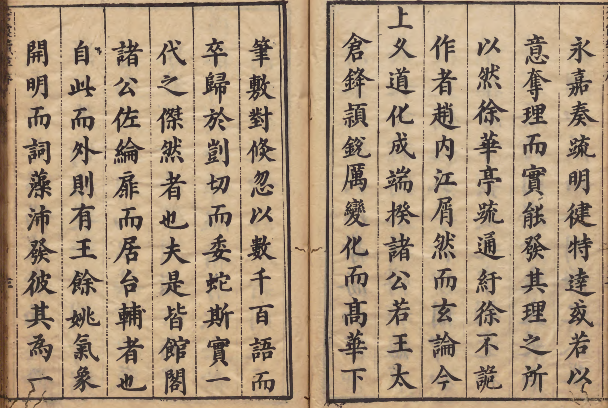 永嘉奏疏明健特達或若以
意奪理而實能發其理之所
以然徐華亭疏通紆徐不詭
作者趙內江屑然而玄論今
上文道化成端揆諸公若王太
倉鋒頴銳厲變化而高華下
筆數對倏忽以數千百語而
卒歸於剴切而委蛇斯實一
代之傑然者也夫是皆館閣
諸公佐綸扉而居台輔者也
自此而外則有王餘姚氣象
開明而詞藻沛發彼其為一